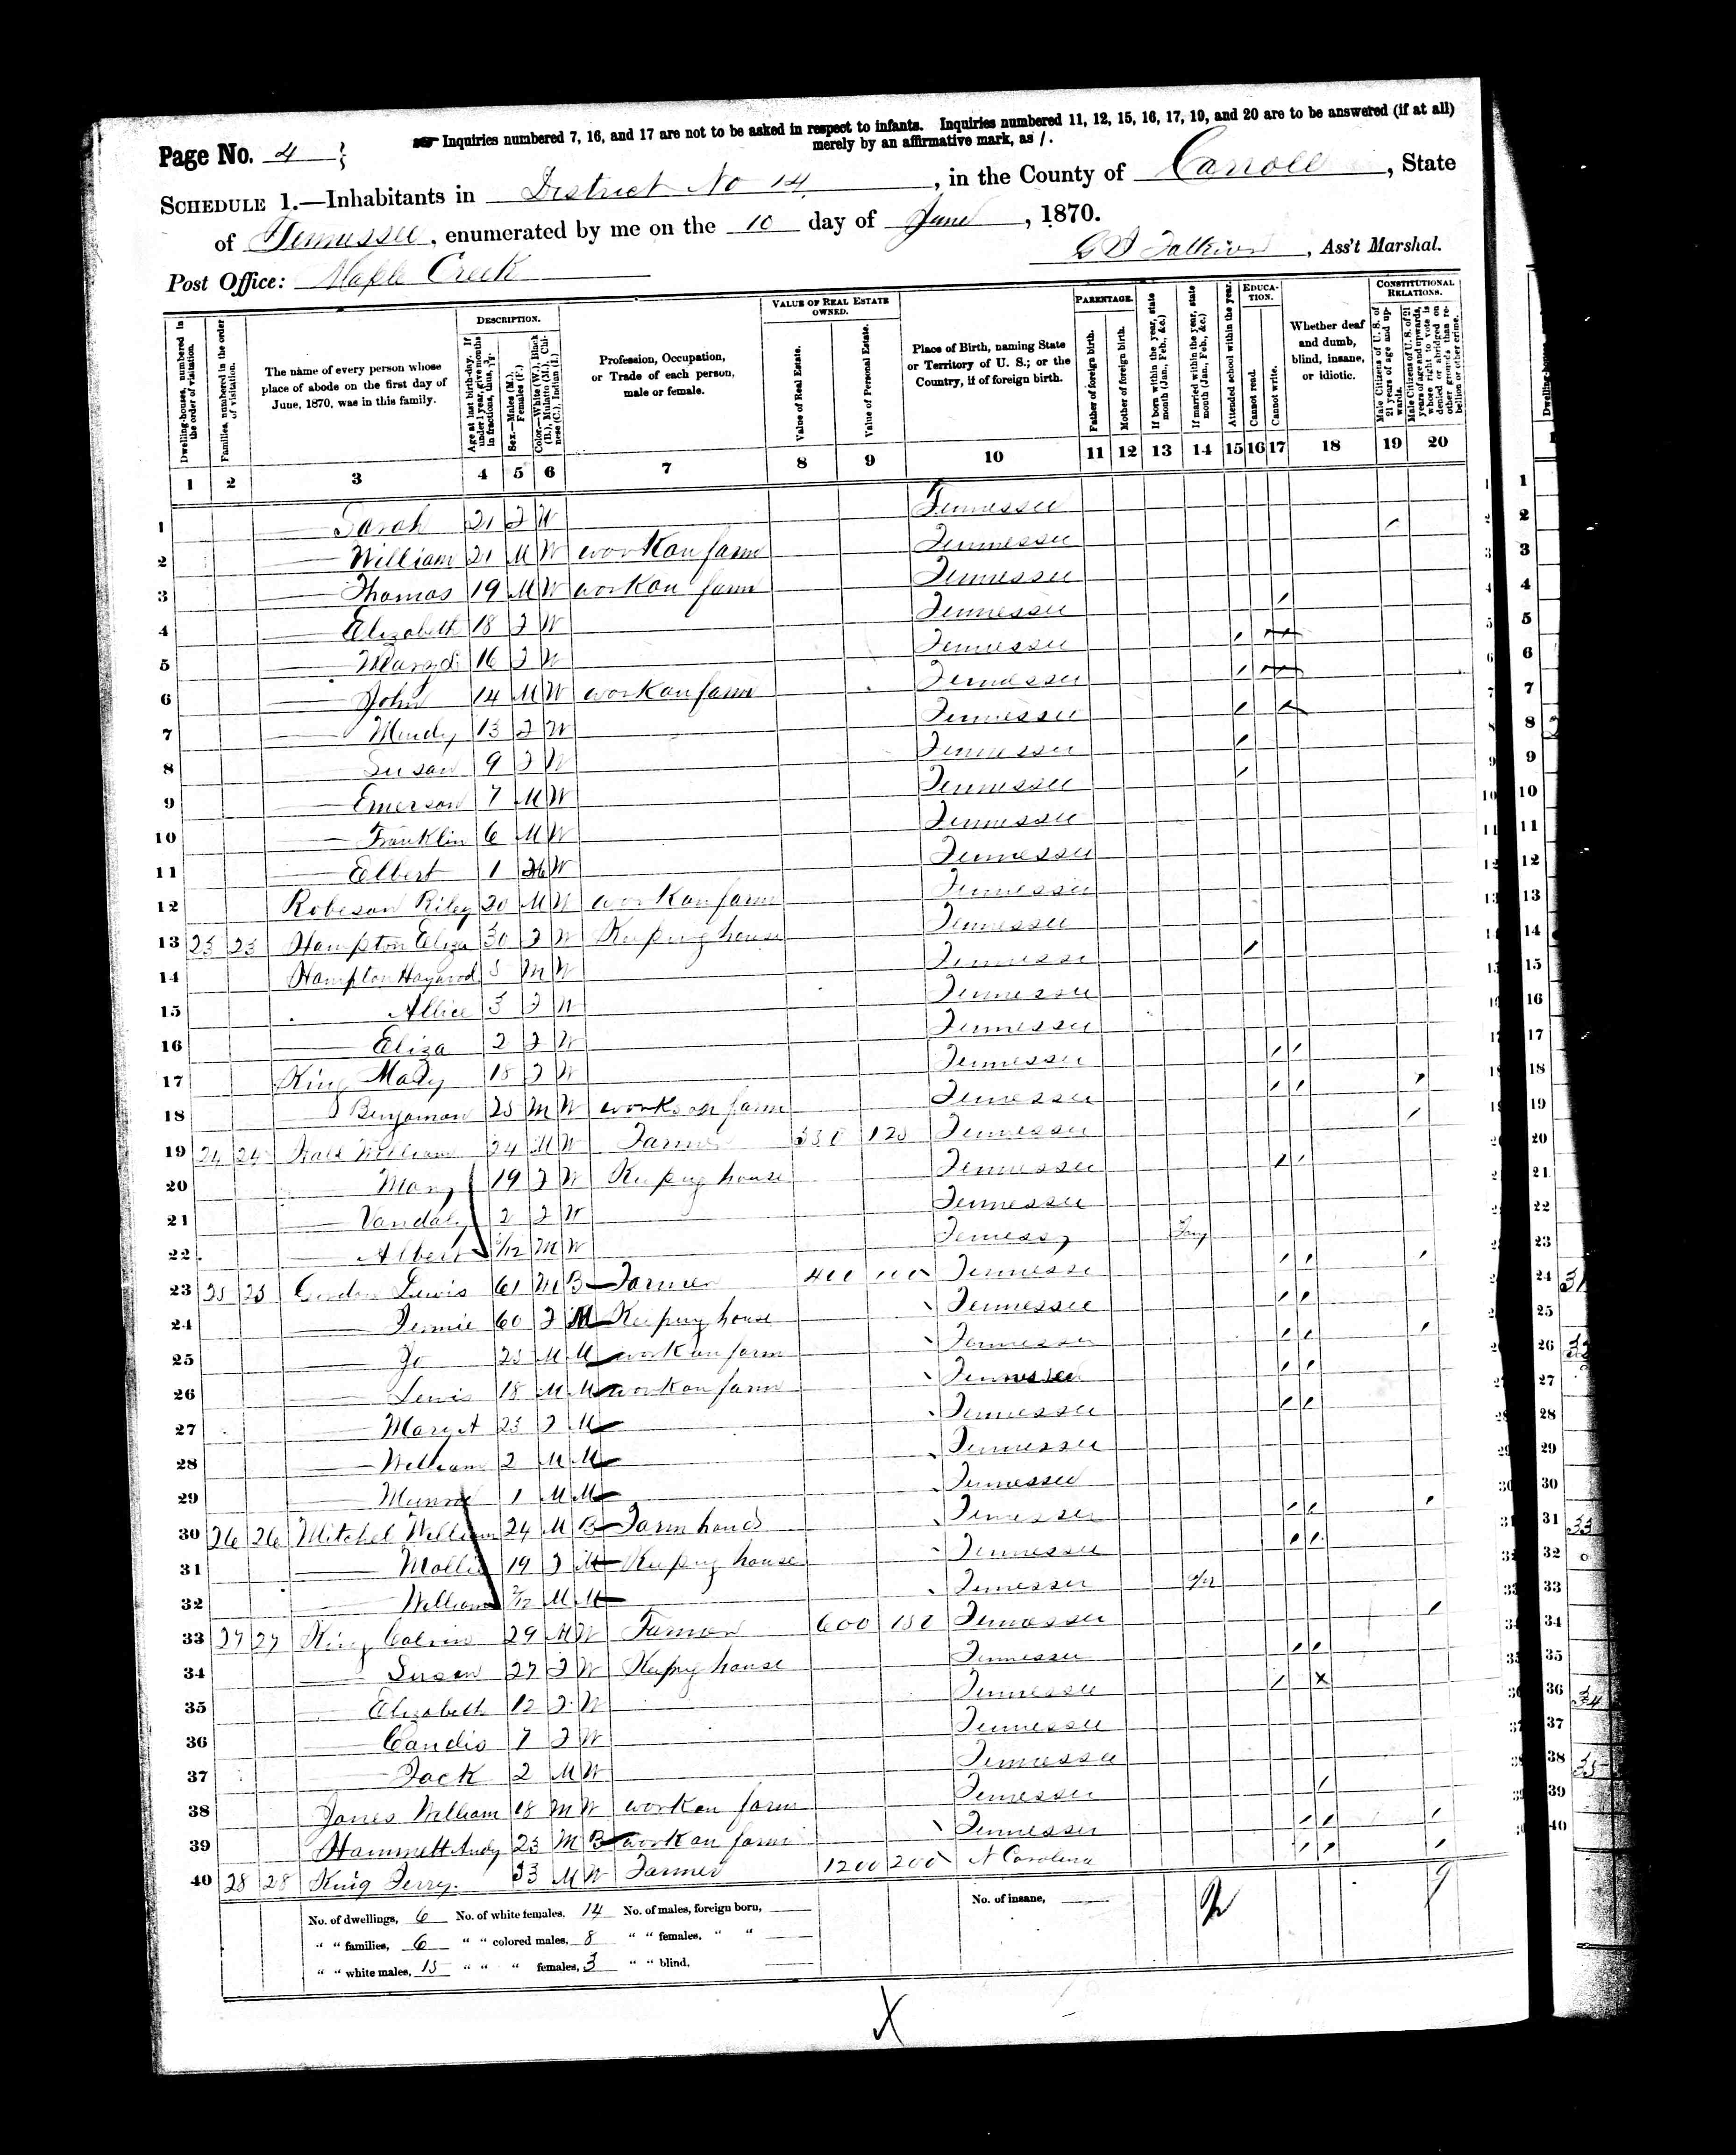 Page No. 4
Inquiries numbered 7, 16, and 17 are not to be asked in respect to infants. Inquiries numbered 11, 12, 15, 16, 17, 19, and 20 are to be answered (if at all)
merely by an affirmative mark, as /.
SCHEDULE 1.—Inhabitants in District No 14, in the County of Carroll, State
of Tennessee, enumerated by me on the 10 day of June, 1870.
Post Office: Maple Creek
, Ass't Marshal.
Dwelling-houses, numbered in the order of visitation.
Families, numbered in the order of visitation.
The name of every person whose place of abode on the first day of June, 1870, was in this family.
DESCRIPTION.
Age at last birth-day. If under 1 year, give months in fractions, thus, 3/12.
Sex.—Males (M.), Females (F.)
Color.—White (W.), Black (B.), Mulatto (M.), Chinese (C.), Indian (I.)
Profession, Occupation, or Trade of each person, male or female.
VALUE OF REAL ESTATE OWNED.
Value of Real Estate.
Value of Personal Estate.
Place of Birth, naming State or Territory of U. S.; or the Country, if of foreign birth.
PARENTAGE.
Father of foreign birth.
Mother of foreign birth.
If born within the year, state month (Jan., Feb., &c.)
If married within the year, state month (Jan., Feb., &c.)
Attended school within the year.
EDUCATION.
Cannot read.
Cannot write.
Whether deaf and dumb, blind, insane, or idiotic.
CONSTITUTIONAL RELATIONS.
Male Citizens of U. S. of 21 years of age and upwards.
Male Citizens of U. S. of 21 years of age and upwards, whose right to vote is denied or abridged on other grounds than rebellion or other crime.
1 2 3 4 5 6 7 8 9 10 11 12 13 14 15 16 17 18 19 20
1 Sarah 21 F W Tennessee
2 William 21 M W work on farm Tennessee /
3 Thomas 19 M W work on farm Tennessee
4 Elizabeth 18 F W Tennessee /
5 16 F W Tennessee /
6 John 14 M W work on farm Tennessee /
7 13 F W Tennessee /
8 Susan 9 F W Tennessee /
9 Emerson 7 M W Tennessee /
10 Franklin 6 M W Tennessee
11 Elbert 1 W Tennessee
12 Robeson Riley 20 M W work on farm Tennessee
13 23 23 Hampton Eliza 30 F W Keepng house Tennessee
14 Hampton Haywood 5 M W Tennessee /
15 Allice 3 F W Tennessee
16 Eliza 2 F W Tennessee
17 King 18 F W Tennessee / /
18 Benjaman 25 M W works on farm Tennessee / / /
19 24 24 William 24 M W Farmer Tennessee /
20 Mary 19 F W Keepng house Tennessee / /
21 2 F W Tennessee
22 Albert M W
23 25 25 Lewis 61 M B Farmer 400 Tennessee / / /
24 60 F M Keepng house Tennessee / /
25 Jo 25 M M work on farm Tennessee /
26 Lewis 18 M M work on farm Tennessee / /
27 Mary A 23 F M Tennessee / /
28 William 2 M M Tennessee
29 1 M M Tennessee
30 26 26 Mitchel William 24 M B Farm hand Tennessee / / /
31 Mollie 19 F M Keepng house Tennessee / /
32 William M M Tennessee
33 27 27 King Calvin 29 M W Farmer 600 Tennessee /
34 Susan 27 F W Keepng house Tennessee / /
35 Elizabeth 12 F W Tennessee / x
36 Candis 7 F W Tennessee
37 Jack 2 M W Tennessee
38 Jones William 18 M W work on farm Tennessee /
39 Hammett Andy 23 M B work on farm Tennessee / / /
40 28 28 King Jerry 53 M W Farmer 1200 200 N Carolina / / /
No. of dwellings, 6 No. of white females, 14 No. of males, foreign born, No. of insane,
" " families, 6 " " colored males, 8 " " females, " "
" " white males, 15 " " " females, 3 " " blind,